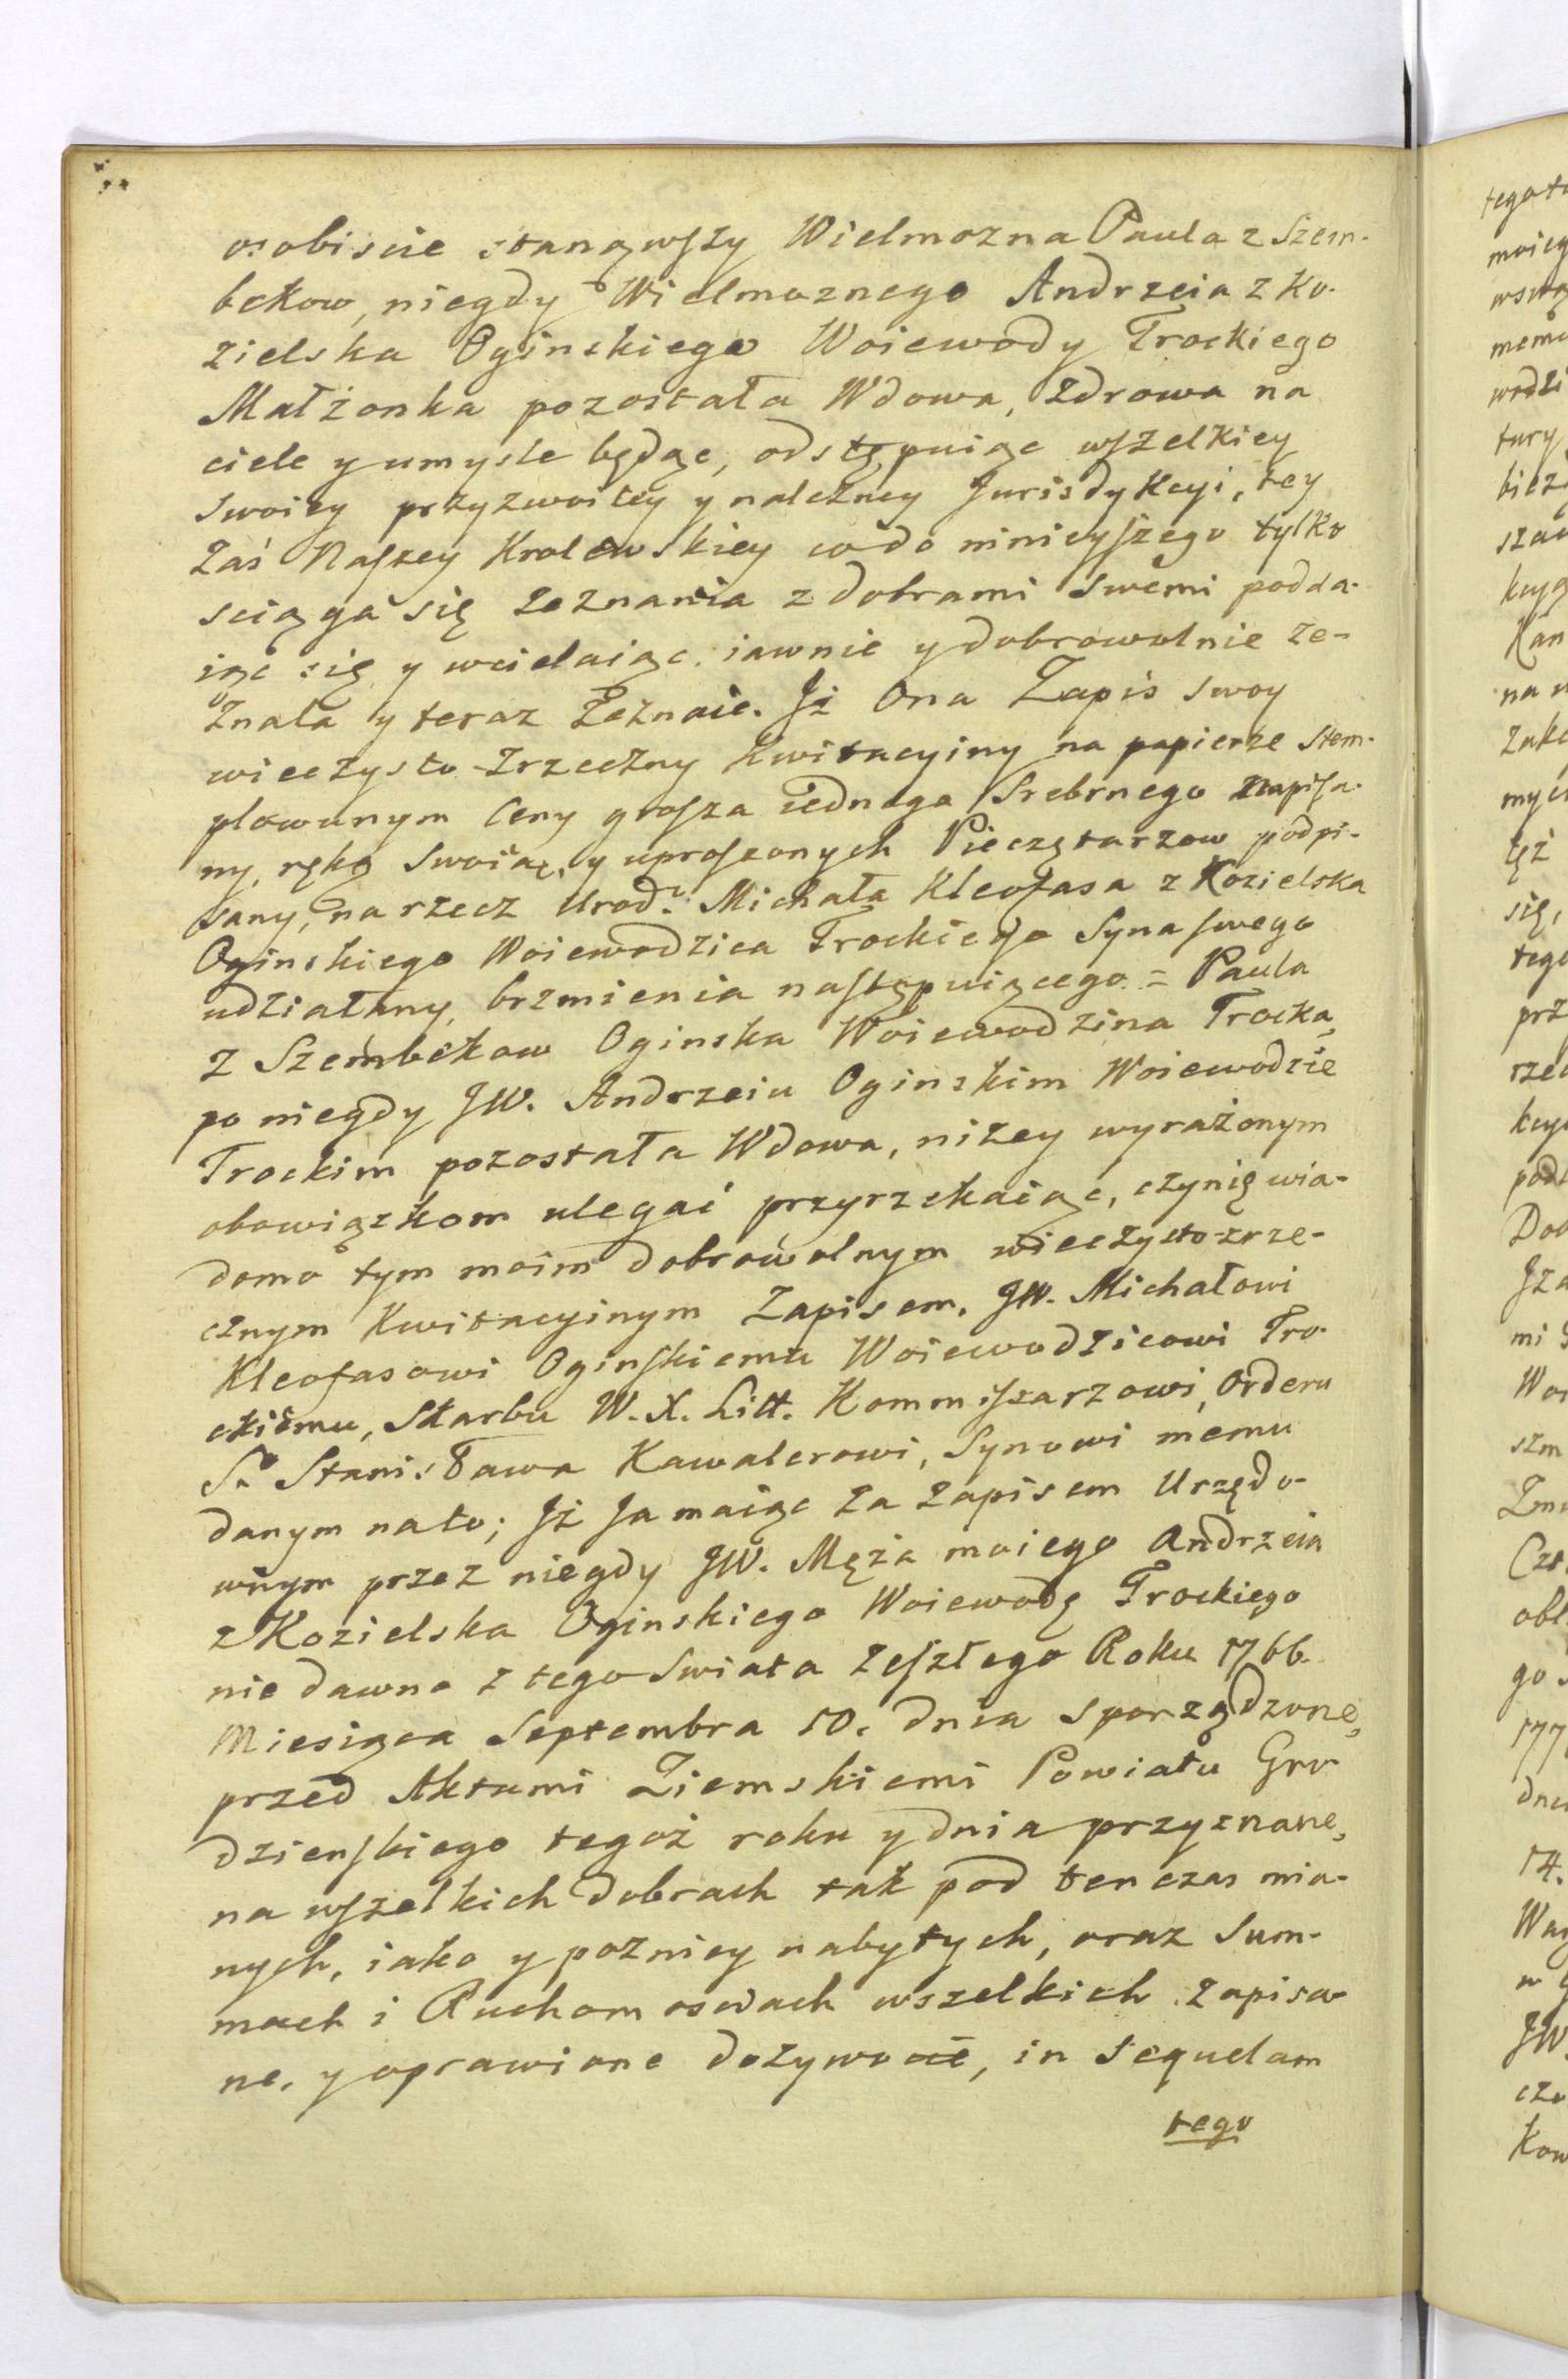 osobiscie stanąwszy Wielmozna Paula z Szem-
bekow, niegdy Wielmoznego Andrzeia z Ko-
zielska Oginskiego Woiewody Trockiego
Małżonka pozostała Wdowa, zdrowa na
ciele y umysle będąc, odstępuiąc wszelkiey
swoiey przyzwoitey y nalezney Jurisdykcyi, tey
zaś Naszey Krolewskiey co do ninieyszego tylko
sciąga się zeznania z dobrami swemi podda-
iąc się y wcielaiąc. iawnie y dobrowolnie ze-
znała y teraz zeznaie. Iż Ona Zapis swoy
wieczysto-zrzeczny kwitacyiny na papierze stem-
plowanym Ceny grosza iednego Srebrnego napisa-
ny, ręką swoią, y uproszonych Pieczętarzow podpi-
sany, na rzecz Urod: Michała Kleofasa z Kozielska
Oginskiego Woiewodzica Trockiego Syna swego
udziałany, brzmienia następuiącego = Paula
z Szembekow Oginska Woiewodzina Trocka,
po niegdy JW. Andrzeiu Oginskim Woiewodzie
Trockim pozostała Wdowa, niżey wyrażonym
obowiązkom ulegać przyrzekaiąc, czynię wia-
domo tym moim dobrowolnym wieczysto-zrze-
cznym Kwitacyinym Zapisem, JW. Michałowi
Kleofasowi Oginskiemu Woiewodzicowi Tro-
ckiemu, Skarbu W. X. Litt. Kommissarzowi, Orderu
S. Stanisława Kawalerowi, Synowi memu
danym na to; Iż Ja maiąc za zapisem Urzędo-
wnym przez niegdy JW. Męża moiego Andrzeia
z Kozielska Oginskiego Woiewodę Trockiego
nie dawno z tego swiata zeszłego Roku 1766.
Miesiąca Septembra 10. dnia sporządzone,
przed Aktami Ziemskiemi Powiatu Gro-
dzienskiego tegoż roku y dnia przyznane,
na wszelkich dobrach tak pod ten czas mia-
nych, iako y pozniey nabytych, oraz Sum-
mach i Ruchomosciach wszelkich zapisa-
ne, y oprawione dożywocie, in sequelam
tego